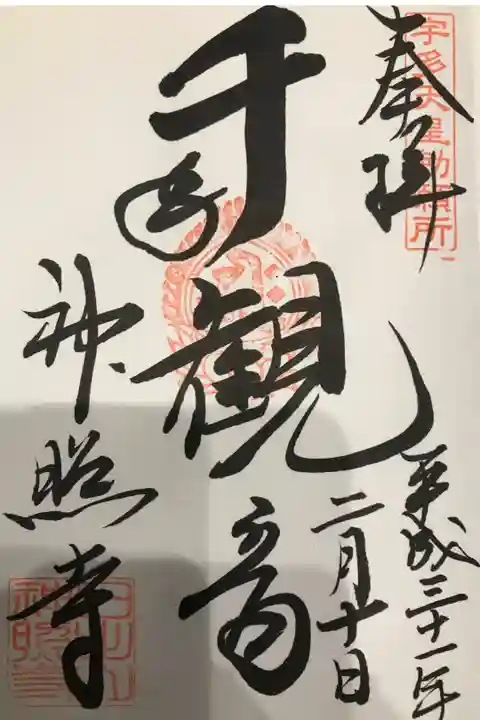 宇多天皇勅願所
奉拝
平成三十一年
二月十日
千手観音
神照寺